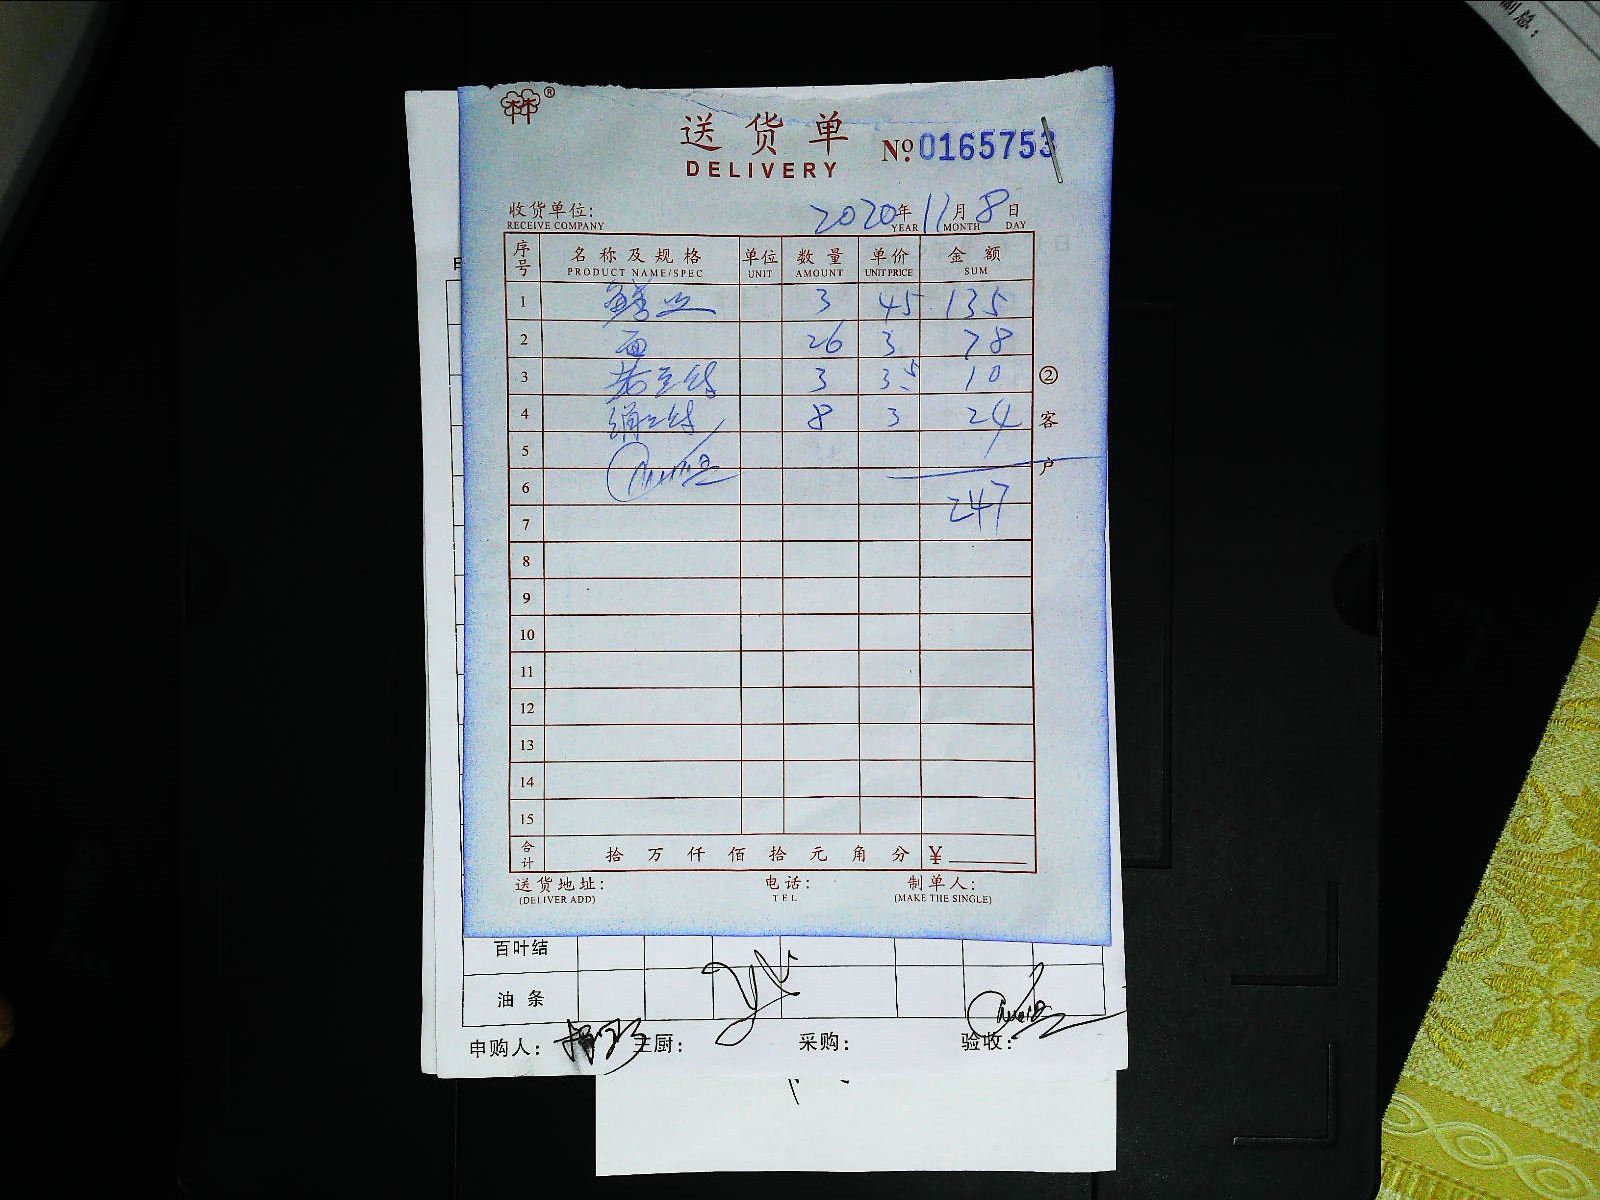 副总:
林®
送货单
DELIVERY
№ 0165753
收货单位: 2020年11月8日
RECEIVE COMPANY YEAR MONTH DAY
序号 名称及规格 单位 数量 单价 金额
PRODUCT NAME/SPEC UNIT AMOUNT UNIT PRICE SUM
1 3 45 135
2 面 26 3 78
3 3 3.5 10
4 8 3 24
5
6
247
7
8
9
10
11
12
13
14
15
合计 拾万仟佰拾元角分 ¥
送货地址: 电话: 制单人:
(DELIVER ADD) TEL (MAKE THE SINGLE)
②客户
百叶结
油条
申购人: 主厨: 采购: 验收: